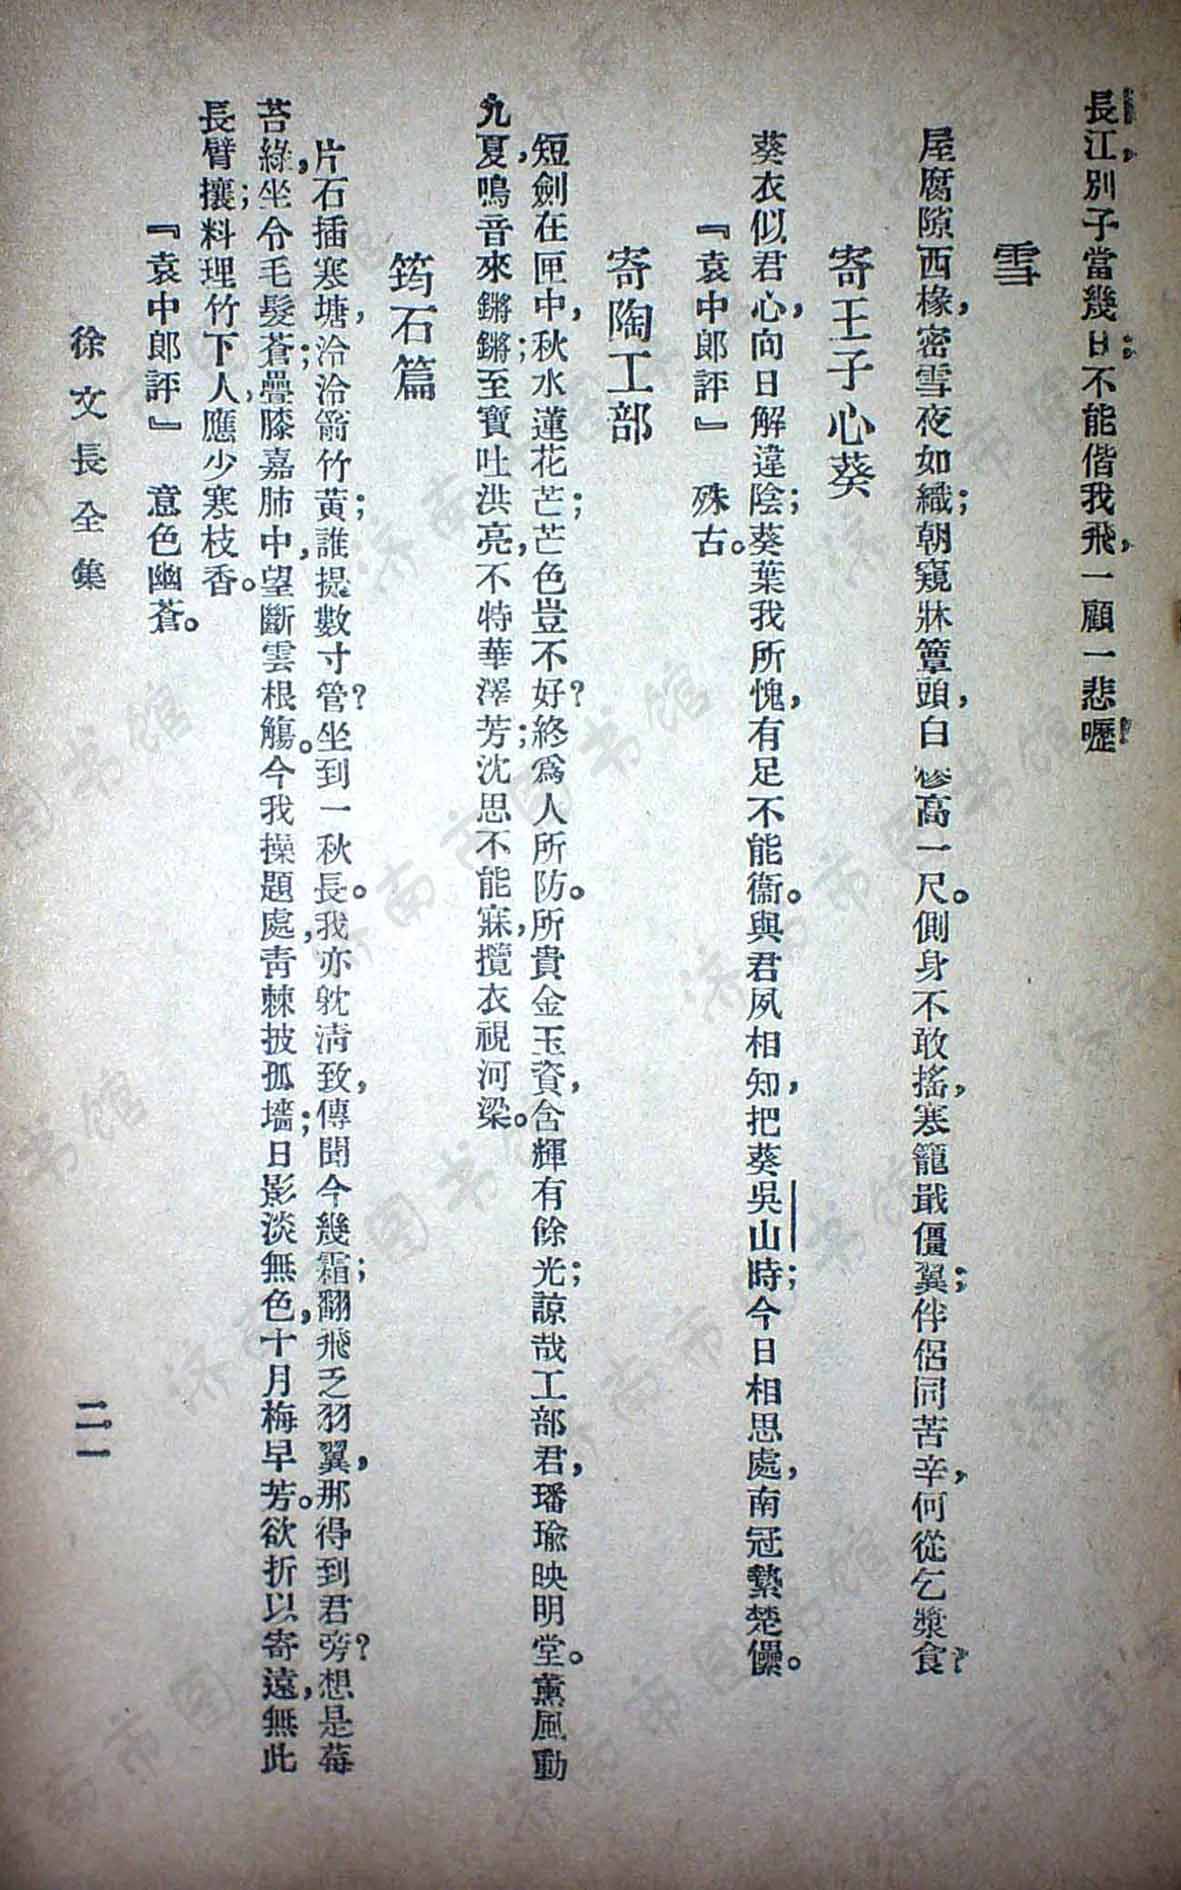 長江，別子當幾日；不能偕我飛，一顧一悲嚦。
雪
屋腐隙西椽，密雪夜如織；朝窺牀簟頭，白㨻高一尺。側身不敢搖，寒籠戢僵翼；伴侶同苦辛，何從乞漿食？
寄王子心葵
葵衣似君心，向日解違陰；葵葉我所愧，有足不能衞。與君夙相知，把葵吳山時；今日相思處，南冠縶楚儽。
『袁中郎評』　殊古。
寄陶工部
短劍在匣中，秋水蓮花芒；芒色豈不好？終爲人所防。所貴金玉資，含輝有餘光；諒哉工部君，璠瑜映明堂。薰風動
九夏，鳴音來鏘鏘；至寶吐洪亮，不特華澤芳；沈思不能寐，攬衣視河梁。
筠石篇
片石插寒塘，泠泠箭竹黃；誰提數寸管？坐到一秋長。我亦躭清致，傳聞今幾霜；翻飛乏羽翼，那得到君旁？想是莓
苔綠，坐令毛髮蒼；疊膝嘉肺中，望斷雲根觴。今我操題處，靑棘披孤墻；日影淡無色，十月梅早芳。欲折以寄遠，無此
長臂攘；料理竹下人，應少寒枝香。
『袁中郎評』　意色幽蒼。
徐文長全集
二一